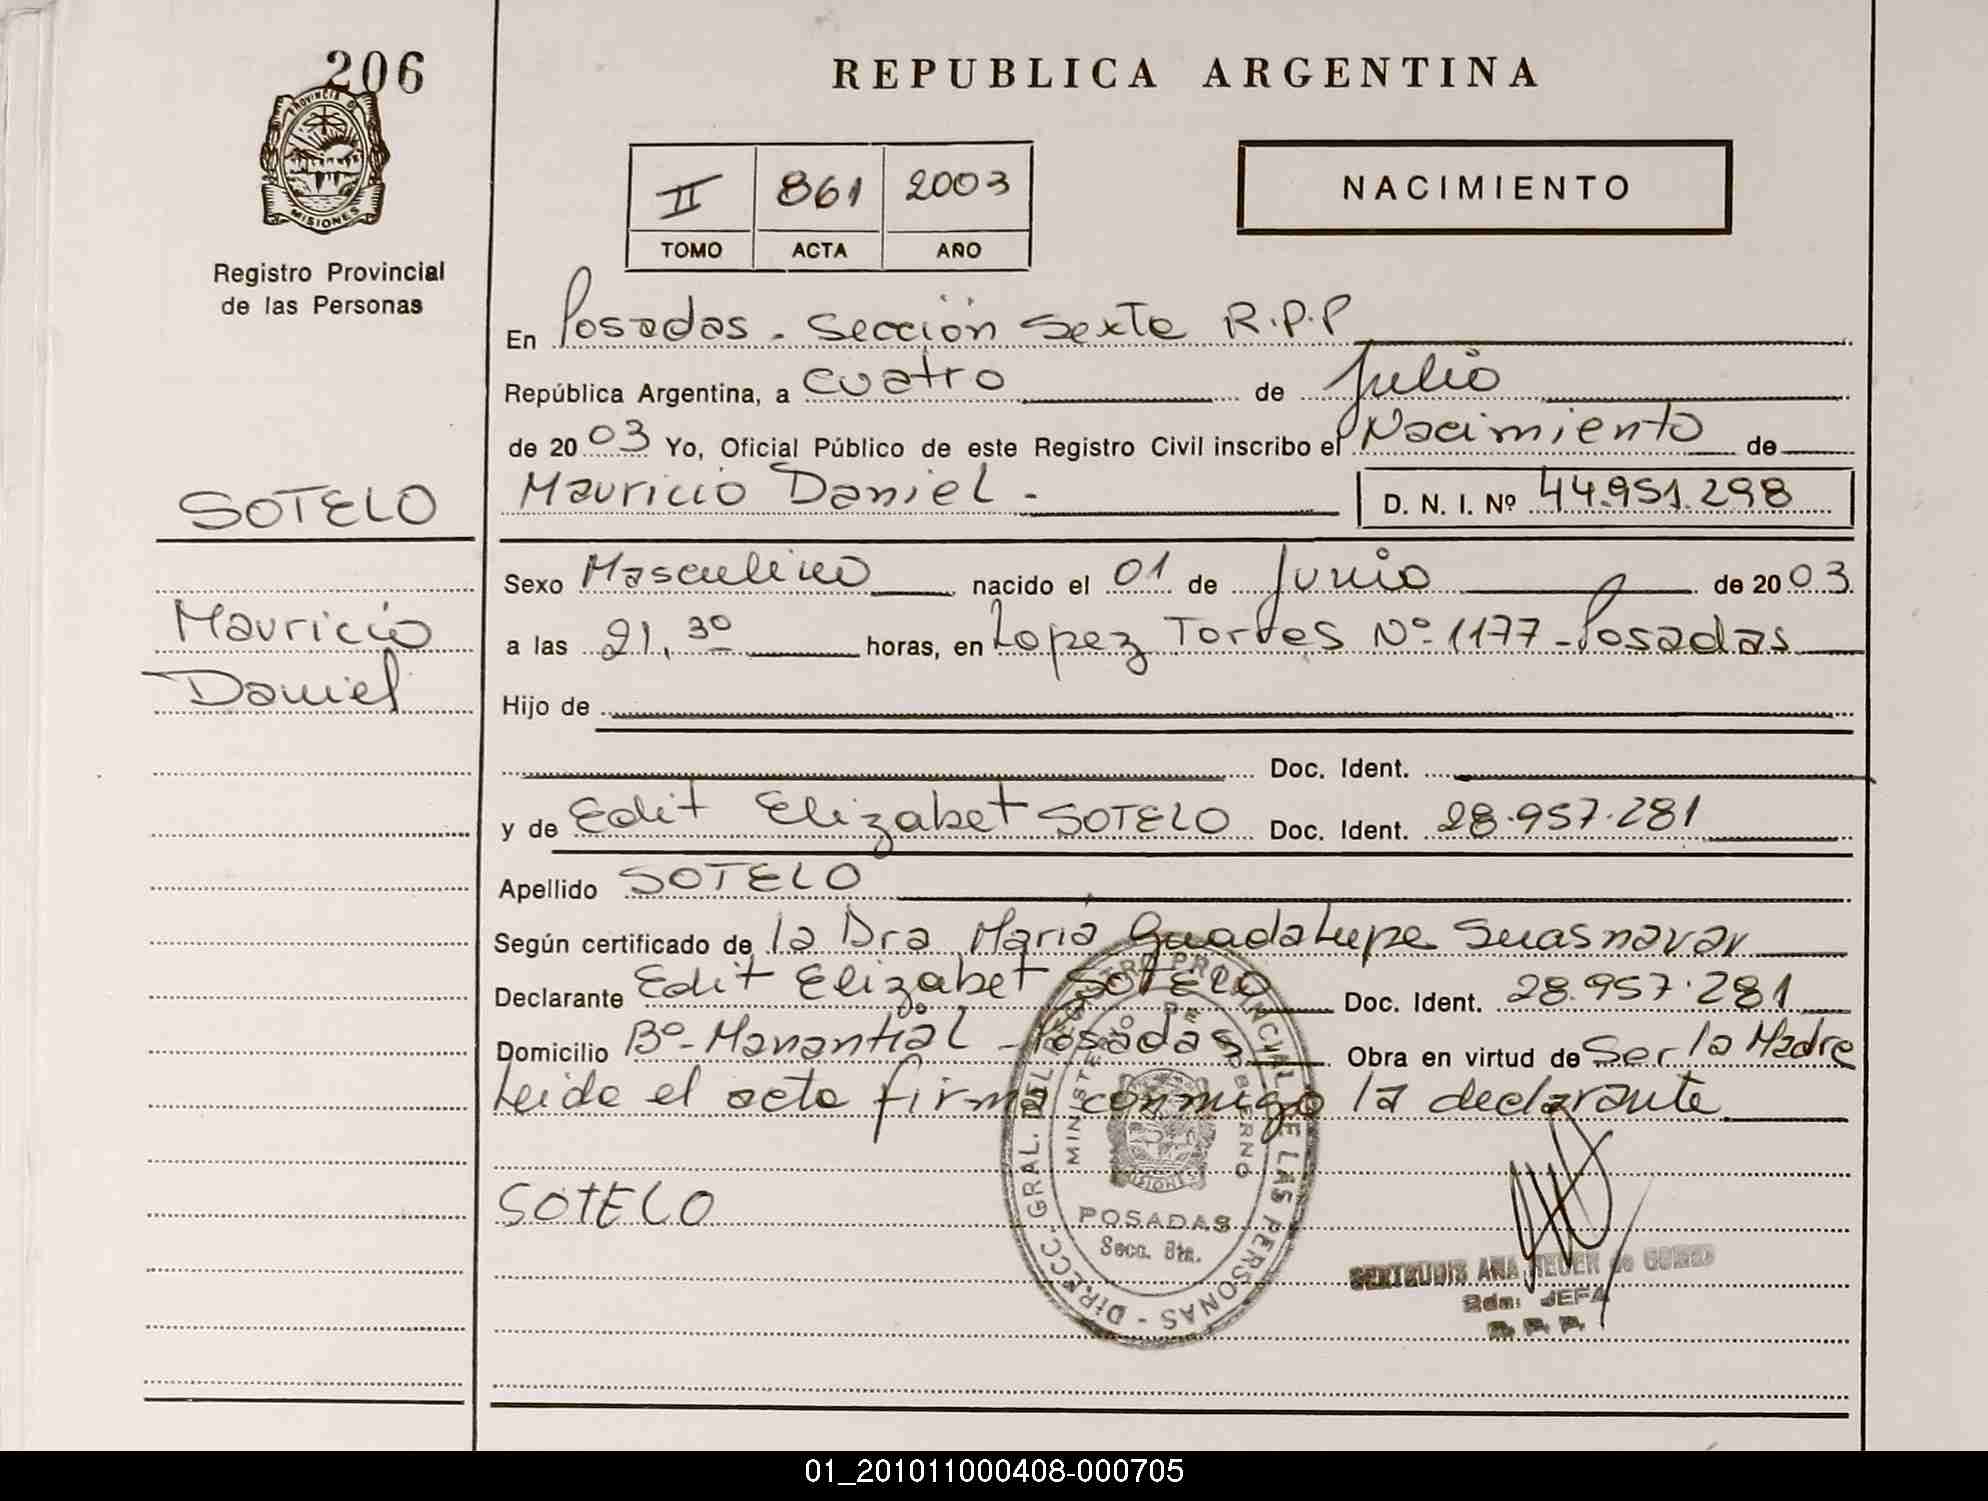 206
PROVINCIA DE
MISIONES
Registro Provincial
de las Personas
SOTELO
Mauricio
Daniel
REPUBLICA ARGENTINA
II 861 2003
TOMO ACTA AÑO
NACIMIENTO
En Posadas - Sección Sexta R.P.P
República Argentina, a cuatro de Julio
de 2003 Yo, Oficial Público de este Registro Civil inscribo el Nacimiento de
Mauricio Daniel - D. N. I. Nº 44.951.298
Sexo Masculino nacido el 01 de Junio de 2003
a las 21,30 horas, en Lopez Torres Nº 1177 - Posadas
Hijo de
Doc. Ident.
y de Edit Elizabet SOTELO Doc. Ident. 28.957.281
Apellido SOTELO
Según certificado de la Dra Maria Guadalupe Suasnavar
Declarante Edit Elizabet SOTELO Doc. Ident. 28.957.281
Domicilio Bº- Manantial - Posadas Obra en virtud de Ser la Madre
Leida el acta firma conmigo la declarante
SOTELO
DIRECC. GRAL. DEL REGISTRO PROVINCIAL DE LAS PERSONAS -
MINISTERIO DE GOBIERNO
MISIONES
POSADAS
Secc. 6ta.
GERTRUDIS ANA
JEFA
R. P. P.
01_201011000408-000705